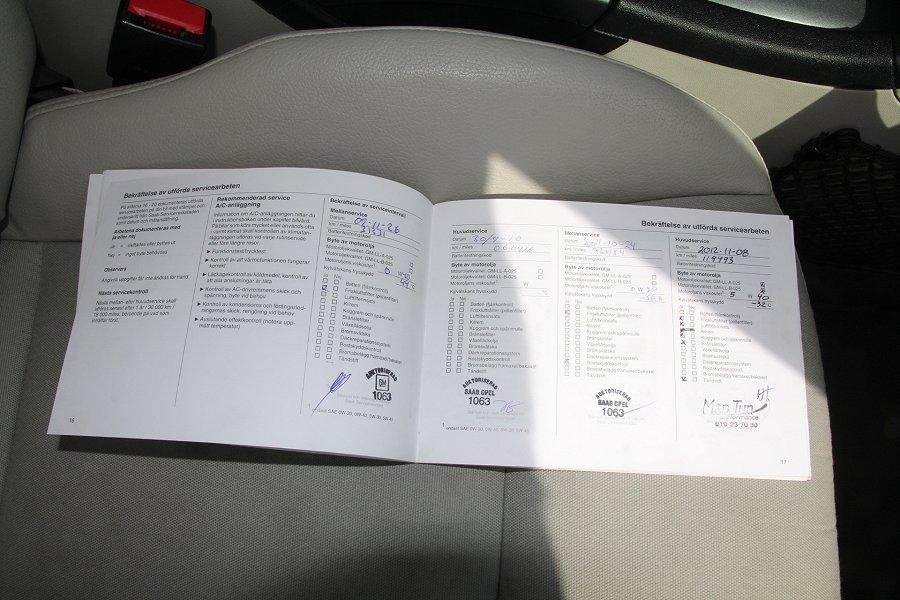 Bekräftelse av utförda servicearbeten
På sidorna 16 - 20 dokumenteras utförda
servicearbeten på din bil med stämpel och
underskrift från Saab Serviceverkstaden
samt datum och mätarställning.
Arbetena dokumenteras med
ja eller nej
Ja = skiftades eller byttes ut
Nej = inget byte behövdes
Observera
Angivna uppgifter får inte ändras för hand.
Nästa servicekontroll
Nästa mellan- eller huvudservice skall
utföras senast efter 1 år / 30 000 km /
18 000 miles, beroende på vad som
inträffar först.
Rekommenderad service
A/C-anläggning
Information om A/C-anläggningen hittar du
i instruktionsboken under kapitlet bilvård.
På bilar som körs mycket eller används ofta
i varmt klimat skall kontrollen av klimatan-
läggningen utföras vid varje rutinservice
eller före längre resor.
Funktionstest/tryckt
Kontroll av att värmefunktionen fungerar
korrekt
Läckagekontroll av köldmedel, kontroll av
att alla anslutningar är täta
Kontroll av AC-drivremmens skick och
spänning, byte vid behov
Kontroll av kondensorns och förångarled-
ningarnas skick, rengöring vid behov
Avslutande effektkontroll (notera upp-
mätt temperatur)
16
Bekräftelse av serviceintervall
Mellanservice
Datum 09-11-26
km / miles
Batteritestningskod
Byte av motorolja
Motoroljekvalitet: GM-LL-A-025
Motoroljekvalitet: GM-LL-B-025
Motoroljans viskositet¹ 0 W
Kylvätskans frysskydd °C
Ja Nej
Batteri (fjärrkontroll)
Friskluftsfilter (pollenfilter)
Luftfilterinsats
Kilrem
Kuggrem och spännrulle
Bränslefilter
Växellådsolja
Bromsvätska
Däckreparationssystem
Rostskyddskontroll
Bromsbelägg framaxel/bakaxel
Tändstift
AUKTORISERAD
GM
1063
¹ endast SAE 0W-30, 0W-40, 5W-30, 5W-40
Bekräftelse av utförda servicearbeten
Huvudservice
Datum 30/9-10
km / miles
Batteritestningskod
Byte av motorolja
Motoroljekvalitet: GM-LL-A-025
Motoroljekvalitet: GM-LL-B-025
Motoroljans viskositet¹ W
Kylvätskans frysskydd °C
Ja Nej
Batteri (fjärrkontroll)
Friskluftsfilter (pollenfilter)
Luftfilterinsats
Kilrem
Kuggrem och spännrulle
Bränslefilter
Växellådsolja
Bromsvätska
Däckreparationssystem
Rostskyddskontroll
Bromsbelägg framaxel/bakaxel
Tändstift
AUKTORISERAD
SAAB OPEL
1063
¹ endast SAE 0W-30, 0W-40, 5W-30, 5W-40
Mellanservice
Datum 2011-10-24
km / miles
Batteritestningskod
Byte av motorolja
Motoroljekvalitet: GM-LL-A-025
Motoroljekvalitet: GM-LL-B-025
Motoroljans viskositet¹ 0 W 30
Kylvätskans frysskydd °C
Ja Nej
Batteri (fjärrkontroll)
Friskluftsfilter (pollenfilter)
Luftfilterinsats
Kilrem
Kuggrem och spännrulle
Bränslefilter
Växellådsolja
Bromsvätska
Däckreparationssystem
Rostskyddskontroll
Bromsbelägg framaxel/bakaxel
Tändstift
AUKTORISERAD
SAAB OPEL
1063
Huvudservice
Datum 2012-11-08
km / miles 119793
Batteritestningskod
Byte av motorolja
Motoroljekvalitet: GM-LL-A-025
Motoroljekvalitet: GM-LL-B-025
Motoroljans viskositet¹ 5 W 40
Kylvätskans frysskydd -32 °C
Ja Nej
Batteri (fjärrkontroll)
Friskluftsfilter (pollenfilter)
Luftfilterinsats
Kilrem
Kuggrem och spännrulle
Bränslefilter
Växellådsolja
Bromsvätska
Däckreparationssystem
Rostskyddskontroll
Bromsbelägg framaxel/bakaxel
Tändstift
17